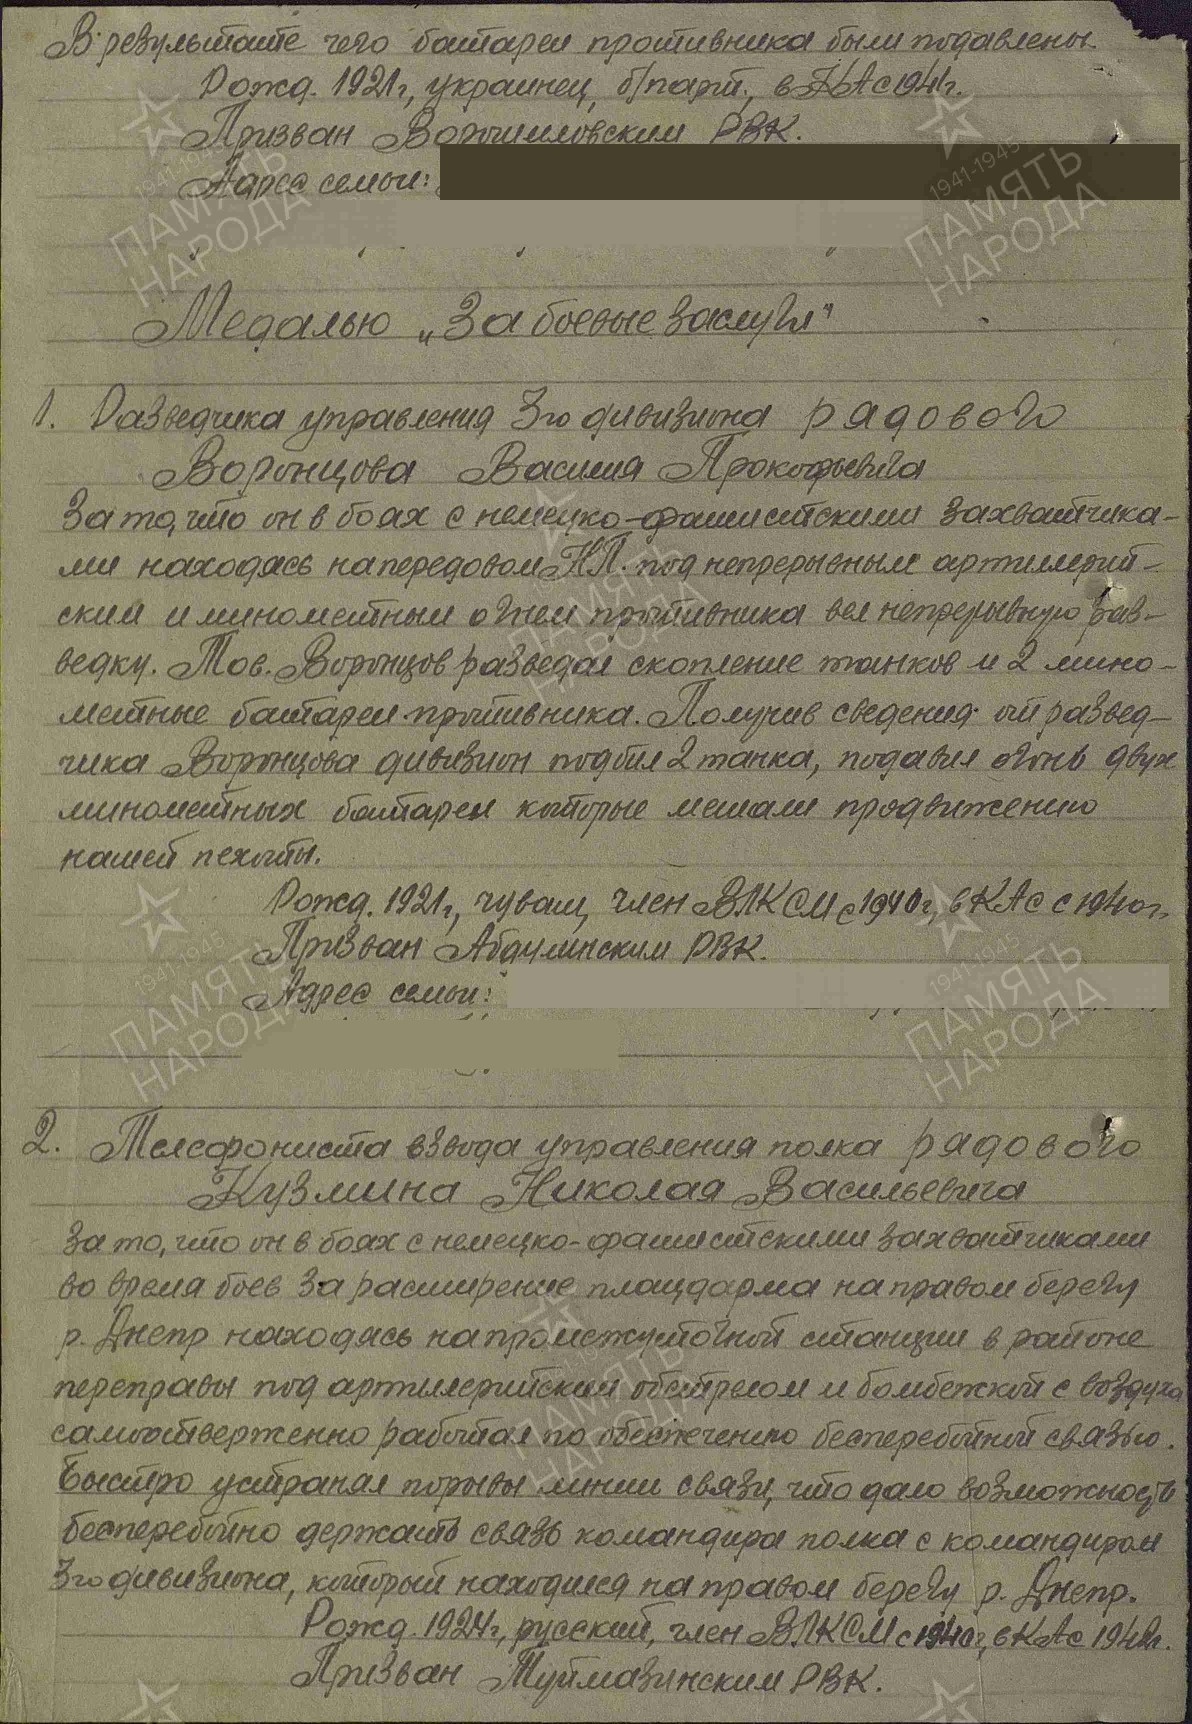 В результате чего батареи противника были подавлены.
Рожд. 1921г., украинец, б/парт., в КА с 1941г.
Призван Ворошиловским РВК.
Адрес семьи:
Медалью „За боевые заслуги"
1. Разведчика управления 3го дивизиона рядового
Воронцова Василия Прокофьевича
За то, что он в боях с немецко-фашистскими захватчика-
ми находясь на передовом НП. под непрерывным артилерий-
ским и минометным огнем противника вел непрерывную раз-
ведку. Тов. Воронцов разведал скопление танков и 2 мино-
метные батареи противника. Получив сведения от развед-
чика Воронцова дивизион подбил 2 танка, подавил огонь двух
минометных батареи которые мешали продвижению
нашей пехоты.
Рожд. 1921г., чуваш, член ВЛКСМ с 1940г., в КА с с 1940г.
Призван Абдулинским РВК.
Адрес семьи:
2. Телефониста взвода управления полка рядового
Кузмина Николая Васильевича
За то, что он в боях с немецко-фашистскими захватчиками
во время боев за расширение плацдарма на правом берегу
р. Днепр находясь на промежуточной станции в районе
переправы под артилерийским обстрелом и бомбежкой с воздуха
самоотверженно работал по обеспечению бесперебойной связью.
Быстро устранял порывы линии связи, что дало возможность
бесперебойно держать связь командира полка с командиром
3го дивизиона, который находился на правом берегу р. Днепр.
Рожд. 1924г., русский, член ВЛКСМ с 1940г., в КА с 1942г.
Призван Туймазинским РВК.
1941-1945
ПАМЯТЬ
НАРОДА